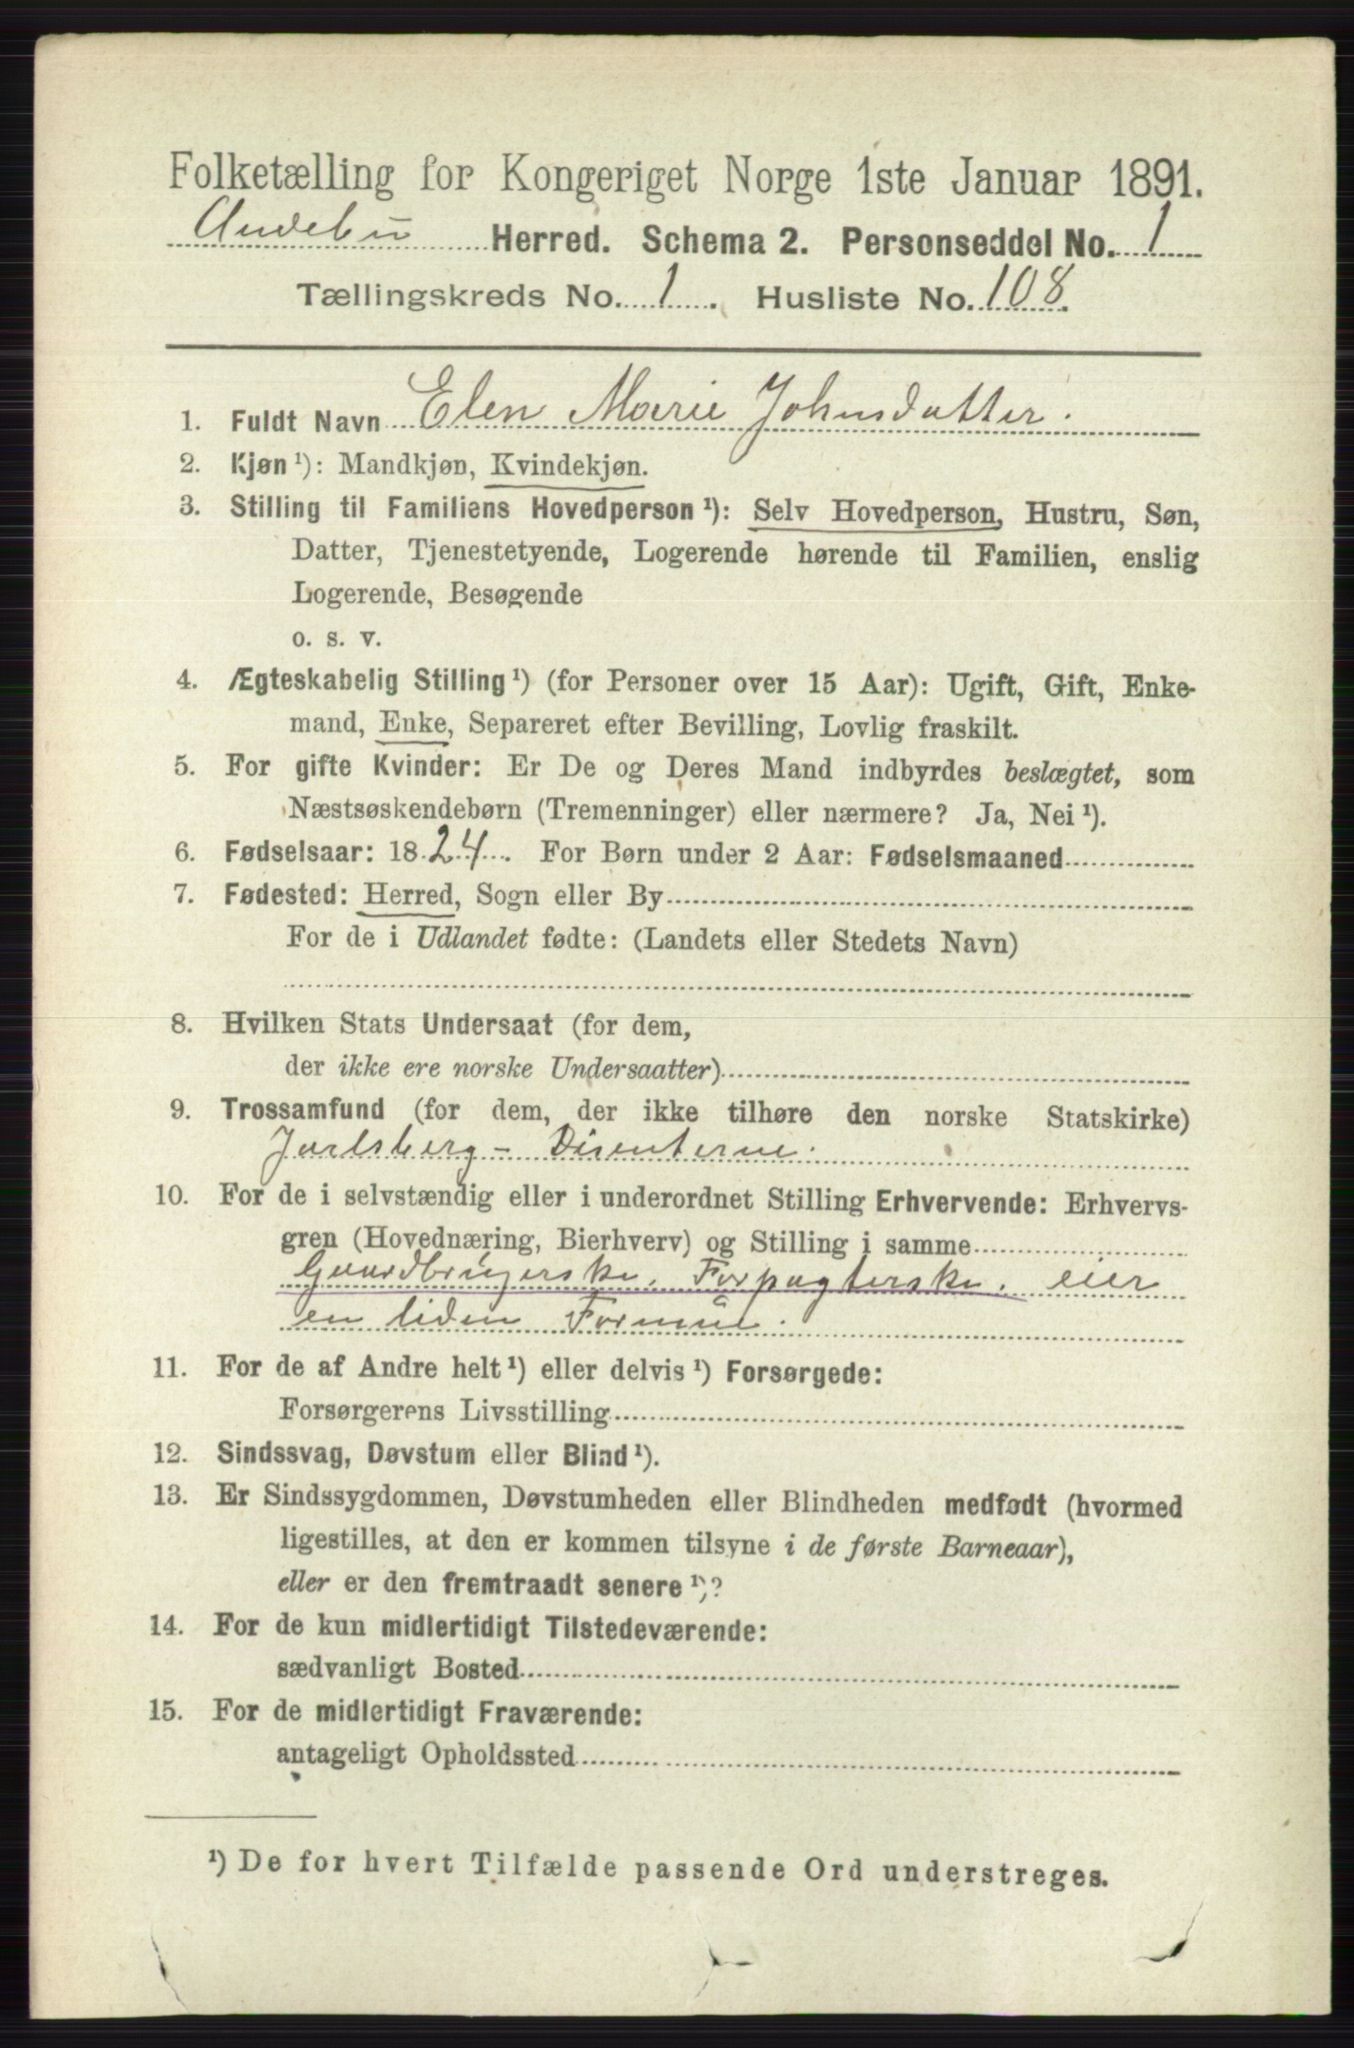 Folketælling for Kongeriget Norge 1ste Januar 1891.
Andebu Herred. Schema 2. Personseddel No. 1
Tællingskreds No. 1. Husliste No. 108.
1. Fuldt Navn Elen Marie Johnsdatter.
2. Kjøn ¹): Mandkjøn, Kvindekjøn.
3. Stilling til Familiens Hovedperson ¹): Selv Hovedperson, Hustru, Søn,
Datter, Tjenestetyende, Logerende hørende til Familien, enslig
Logerende, Besøgende
o. s. v.
4. Ægteskabelig Stilling ¹) (for Personer over 15 Aar): Ugift, Gift, Enke-
mand, Enke, Separeret efter Bevilling, Lovlig fraskilt.
5. For gifte Kvinder: Er De og Deres Mand indbyrdes beslægtet, som
Næstsøskendebørn (Tremenninger) eller nærmere? Ja, Nei ¹).
6. Fødselsaar: 1824. For Børn under 2 Aar: Fødselsmaaned
7. Fødested: Herred, Sogn eller By
For de i Udlandet fødte: (Landets eller Stedets Navn)
8. Hvilken Stats Undersaat (for dem,
der ikke ere norske Undersaatter)
9. Trossamfund (for dem, der ikke tilhøre den norske Statskirke)
Jarlsberg - Disenterne.
10. For de i selvstændig eller i underordnet Stilling Erhvervende: Erhvervs-
gren (Hovednæring, Bierhverv) og Stilling i samme
Gaardbrugerske, Forpagterske. eier
en liden Formue.
11. For de af Andre helt ¹) eller delvis ¹) Forsørgede:
Forsørgerens Livsstilling
12. Sindssvag, Døvstum eller Blind ¹).
13. Er Sindssygdommen, Døvstumheden eller Blindheden medfødt (hvormed
ligestilles, at den er kommen tilsyne i de første Barneaar),
eller er den fremtraadt senere ¹)?
14. For de kun midlertidigt Tilstedeværende:
sædvanligt Bosted
15. For de midlertidigt Fraværende:
antageligt Opholdssted
¹) De for hvert Tilfælde passende Ord understreges.